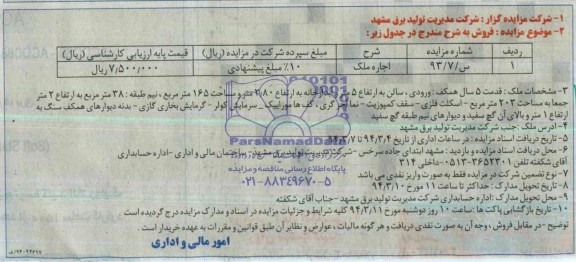 ۱- شرکت مزایده گزار : شرکت مدیریت تولید برق مشهد
۲- موضوع مزایده : فروش به شرح مندرج در جدول زیر :
ردیف شماره مزایده شرح مبلغ سپرده شرکت در مزایده (ریال) قیمت پایه ارزیابی کارشناسی (ریال)
۱ س/۹۳/۷ اجاره ملک ۱۰٪ مبلغ پیشنهادی ۷/۵۰۰/۰۰۰ ریال
۳- مشخصات ملک : قدمت ۵ سال همکف : ورودی ، سالن به ارتفاع ۵ متر و آبدارخانه به ارتفاع ۲/۸۰ متر و مساحت ۱۶۵ متر مربع ، نیم طبقه : ۳۸ متر مربع به ارتفاع ۲ متر
جمعا به مساحت ۲۰۳ متر مربع - اسکلت فلزی - سقف کمپوزیت - نما آجر گری ، کف ها موزاییک - سرمایش کولر - گرمایش بخاری گازی - بدنه دیوارهای همکف سنگ به
ارتفاع ۱ متر و بالای آن گچ سفید و دیوارهای نیم طبقه گچ سفید
۴- آدرس ملک : جنب شرکت مدیریت تولید برق مشهد
۵- تاریخ دریافت اسناد مزایده : در ساعات اداری از تاریخ ۹۴/۳/۴ تا ۹۴/۳/۷
۶- محل دریافت اسناد مزایده و بازدید : مشهد ابتدای جاده سرخس - شرکت مدیریت تولید برق مشهد - ساختمان مالی و اداری - اداره حسابداری
آقای شکفته تلفن ۳۶۵۲۳۰۱-۰۵۱۳ داخلی ۳۱۴
۷- نوع تضمین شرکت در مزایده فقط به صورت واریز نقدی می باشد
۸- تاریخ تحویل مدارک : حداکثر تا ساعت ۱۱ مورخ ۹۴/۳/۱۰
۹- محل تحویل مدارک : اداره حسابداری شرکت مدیریت تولید برق مشهد - جناب آقای شکفته
۱۰- تاریخ بازگشایی پاکت ها : ساعت ۱۰ روز دوشنبه مورخ ۹۴/۳/۱۱ کلیه شرایط و جزئیات مزایده در اسناد و مدارک مزایده درج گردیده است
توضیح - در مقابل فروش ، وجه آن به صورت نقدی دریافت و هر گونه مالیات ، عوارض و نظایر آن طبق قوانین و مقررات به عهده خریدار است .
امور مالی و اداری
ParsNamadData
پایگاه اطلاع رسانی مناقصه و مزایده
۰۲۱-۸۸۳۴۹۶۷۰-۵